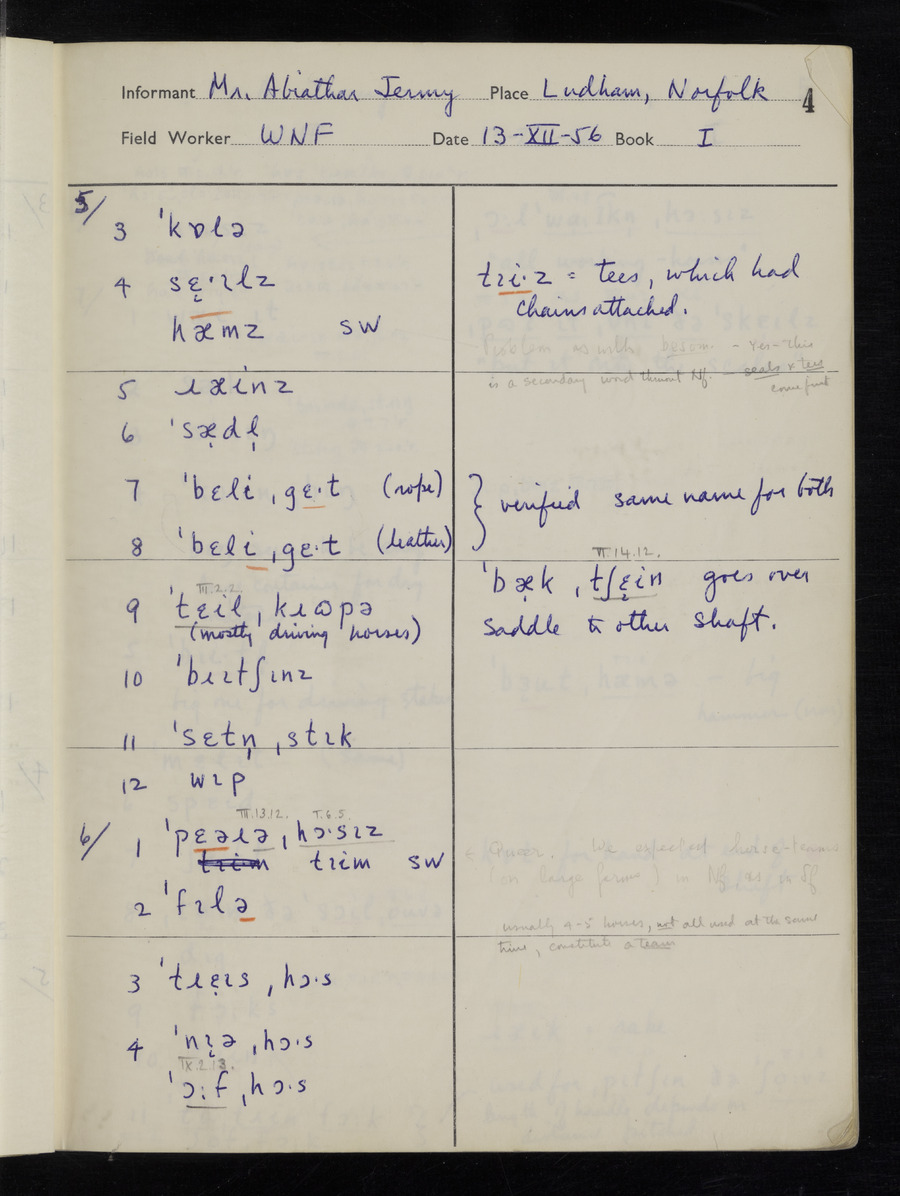 Informant Mr. Abiathar Jermy Place Ludham, Norfolk 4
Field Worker WNF Date 13-XII-56 Book I
5/
3 ˈkɒlə
4 sɛ̨·ɪlz
hæmz SW
tɪi·z = tees, which had
chains attached.
Problem as with besom. – Yes – this
is a secondary word thruout Nf. seals & tees
come first
5 ɹæinz
6 ˈsædl̩
7 ˈbɛli ˌgɛ·t (rope)
8 ˈbɛli ˌgɛ·t (leather)
} verified same name for both
III.2.2.
9 ˈtɛil ˌkɹɷpə
(mostly driving horses)
VI.14.12.
ˈbæk ˌtʃɛ̨in goes over
saddle to other shaft.
10 ˈbɹɪtʃɪnz
11 ˈsɛtn̩ ˌstɪk
12 wɪp
6/
III.13.12. I.6.5.
1 ˈpɛəɹə ˌhɔ·sɪz
tɹim tɹim SW
Queer. We expected horse-teams
(on large farms) in Nf as in Sf
2 ˈfɪlə
usually 4-5 horses, not all used at the same
time, constitute a team
3 ˈtɹɛ̨ɪs ˌhɔ·s
4 ˈnɪ̨ə ˌhɔ·s
IX.2.13.
ˈɔ:f ˌhɔ·s